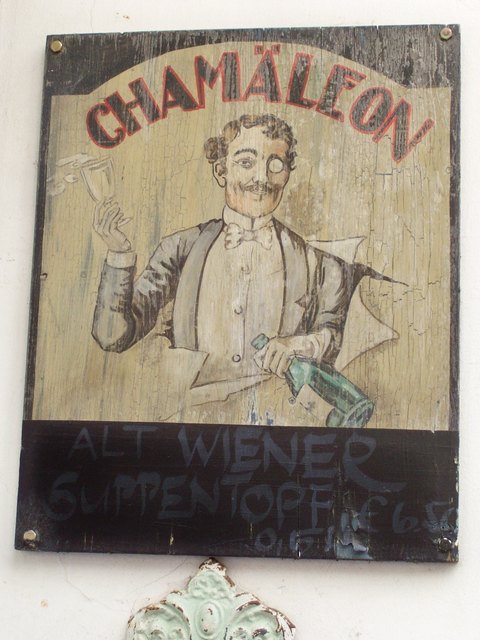 CHAMÄLEON
ALT WIENER
SUPPENTOPF € 6.50